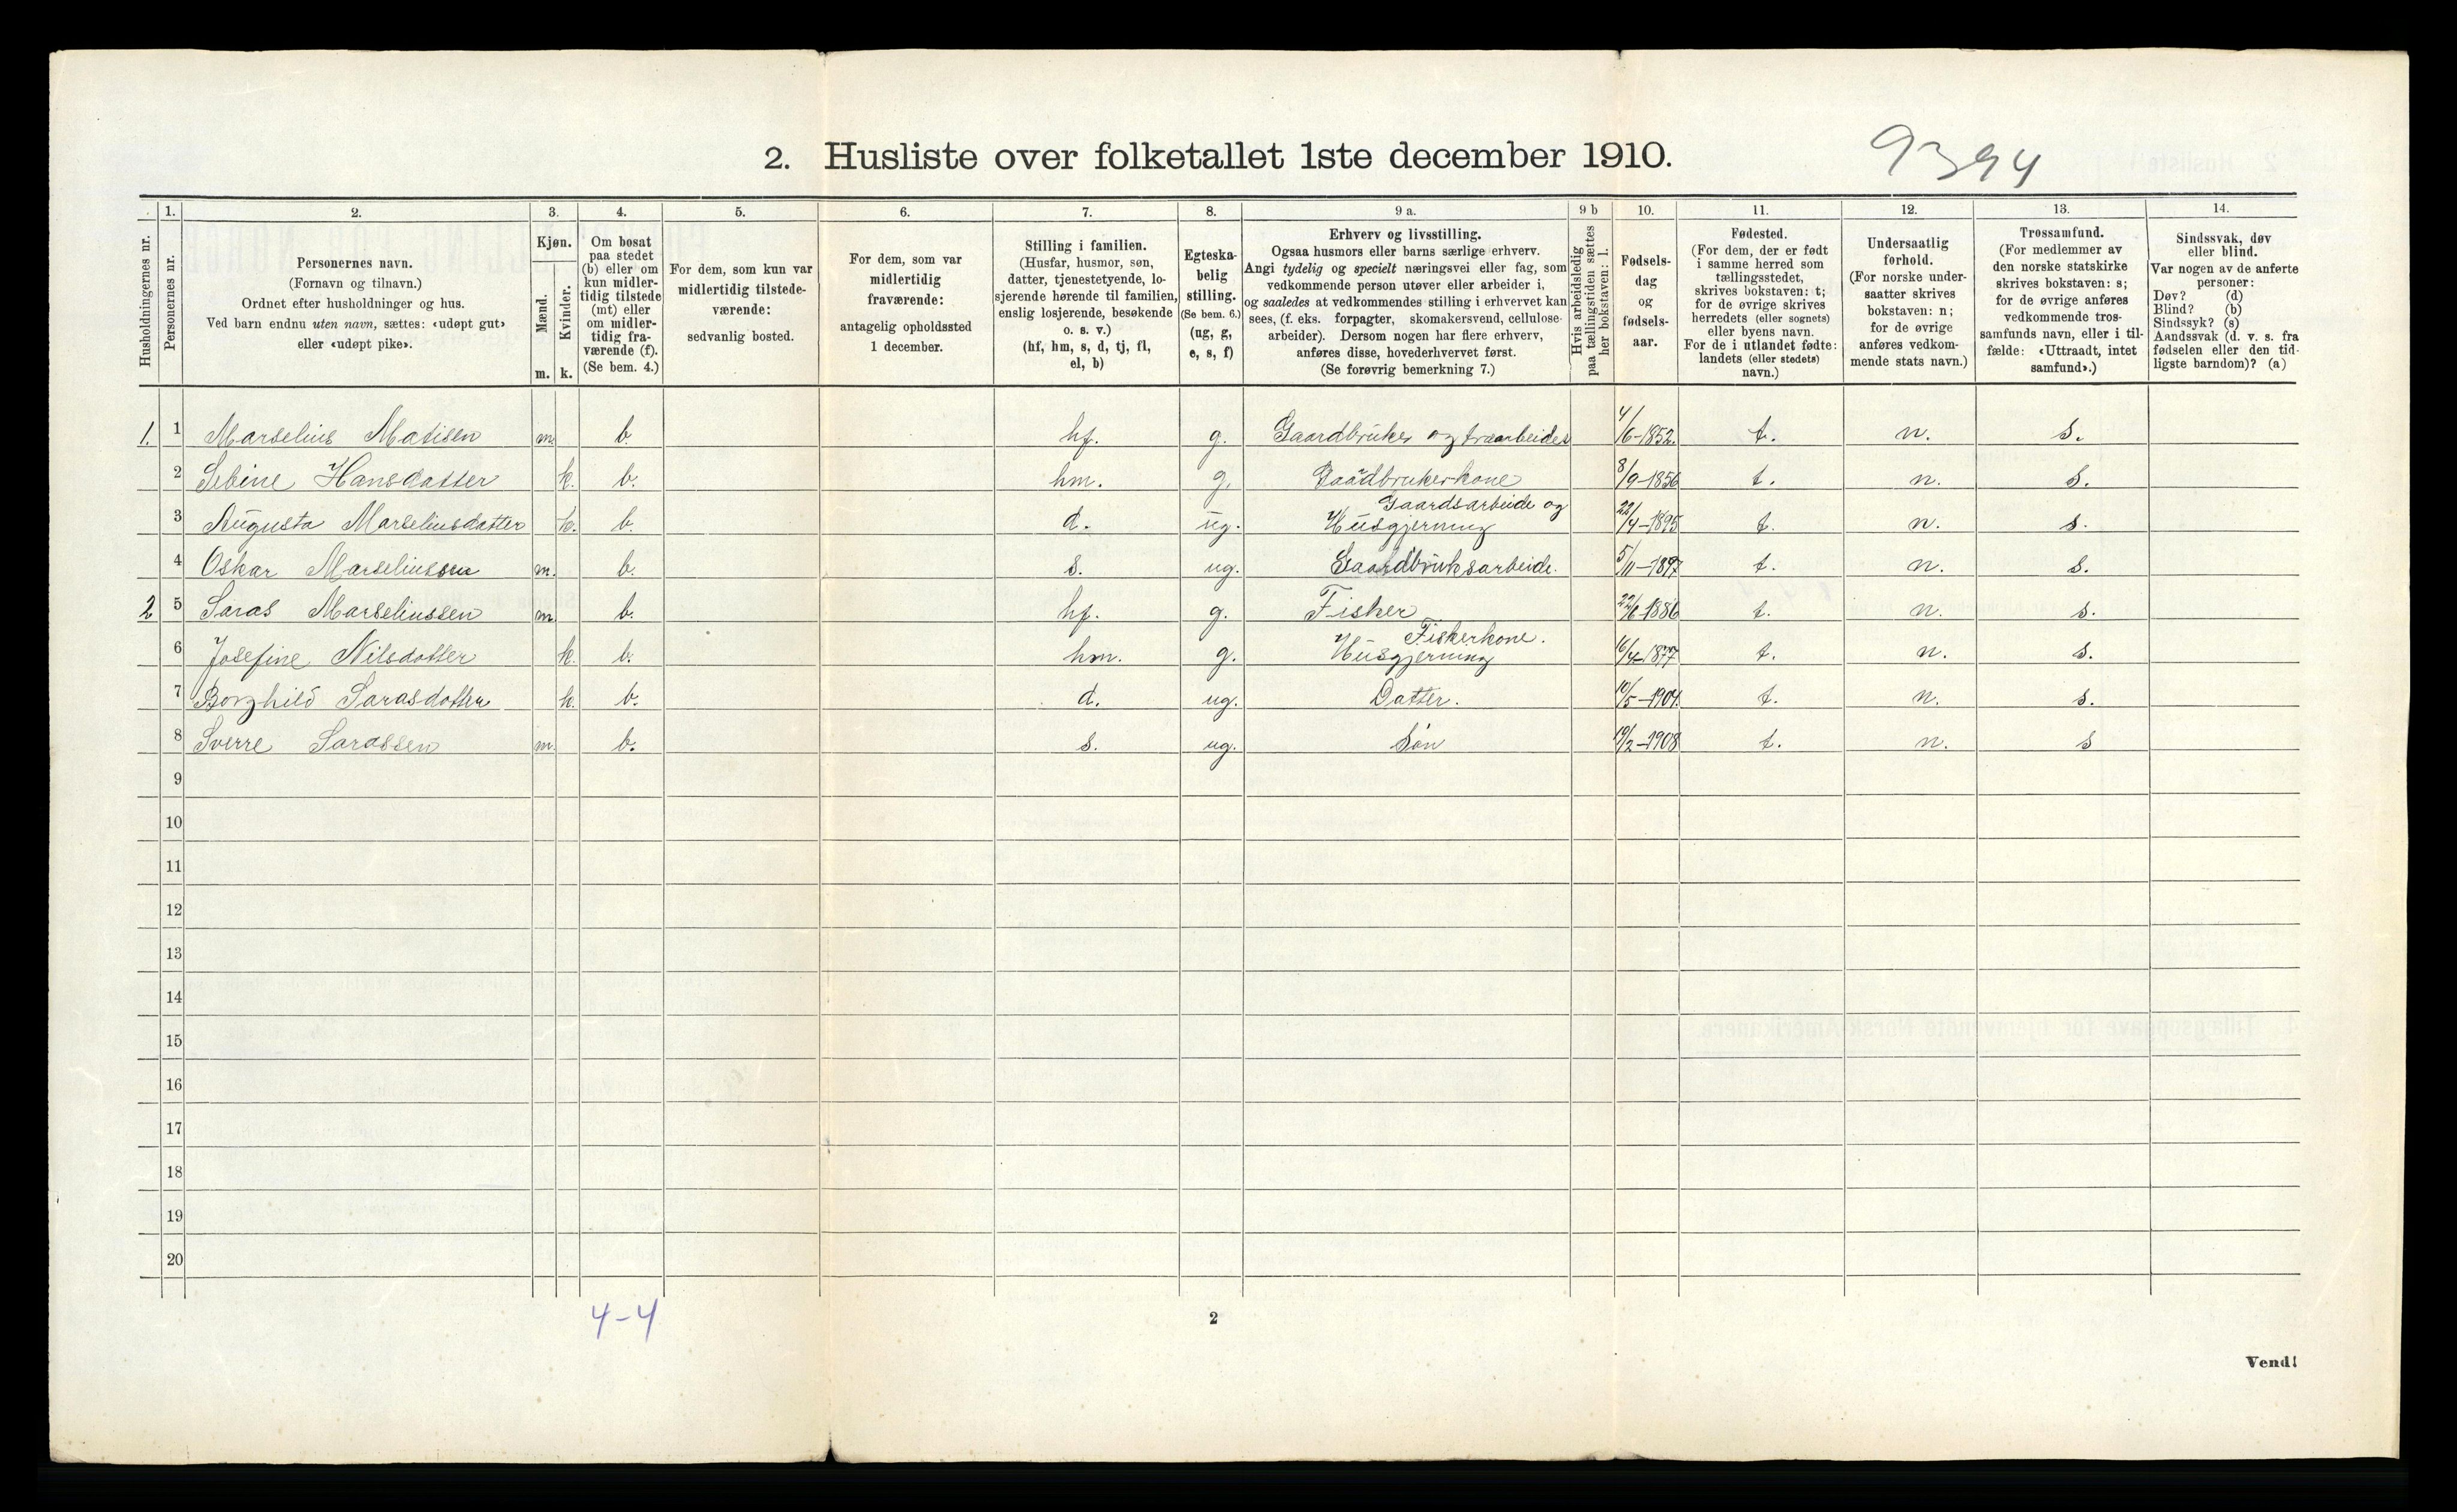 2. Husliste over folketallet 1ste december 1910.
9394
Husholdningernes nr.
1.
Personernes nr.
2.
Personernes navn.
(Fornavn og tilnavn.)
Ordnet efter husholdninger og hus.
Ved barn endnu uten navn, sættes: «udøpt gut»
eller «udøpt pike».
3.
Kjøn.
Mænd.
Kvinder.
m. k.
4.
Om bosat
paa stedet
(b) eller om
kun midler-
tidig tilstede
(mt) eller
om midler-
tidig fra-
værende (f).
(Se bem. 4.)
5.
For dem, som kun var
midlertidig tilstede-
værende:
sedvanlig bosted.
6.
For dem, som var
midlertidig
fraværende:
antagelig opholdssted
1 december.
7.
Stilling i familien.
(Husfar, husmor, søn,
datter, tjenestetyende, lo-
sjerende hørende til familien,
enslig losjerende, besøkende
o. s. v.)
(hf, hm, s, d, tj, fl,
el, b)
8.
Egteska-
belig
stilling.
(Se bem. 6.)
(ug, g,
e, s, f)
9 a.
Erhverv og livsstilling.
Ogsaa husmors eller barns særlige erhverv.
Angi tydelig og specielt næringsvei eller fag, som
vedkommende person utøver eller arbeider i,
og saaledes at vedkommendes stilling i erhvervet kan
sees, (f. eks. forpagter, skomakersvend, cellulose-
arbeider). Dersom nogen har flere erhverv,
anføres disse, hovederhvervet først.
(Se forøvrig bemerkning 7.)
9 b
Hvis arbeidsledig
paa tællingstiden sættes
her bokstaven: l.
10.
Fødsels-
dag
og
fødsels-
aar.
11.
Fødested.
(For dem, der er født
i samme herred som
tællingsstedet,
skrives bokstaven: t;
for de øvrige skrives
herredets (eller sognets)
eller byens navn.
For de i utlandet fødte:
landets (eller stedets)
navn.)
12.
Undersaatlig
forhold.
(For norske under-
saatter skrives
bokstaven: n;
for de øvrige
anføres vedkom-
mende stats navn.)
13.
Trossamfund.
(For medlemmer av
den norske statskirke
skrives bokstaven: s;
for de øvrige anføres
vedkommende tros-
samfunds navn, eller i til-
fælde: «Uttraadt, intet
samfund».)
14.
Sindssvak, døv
eller blind.
Var nogen av de anførte
personer:
Døv? (d)
Blind? (b)
Sindssyk? (s)
Aandssvak (d. v. s. fra
fødselen eller den tid-
ligste barndom)? (a)
1. 1 Marselius Matisen m. b. hf. g. Gaardbruker og træarbeider 4/6-1852. t. n. s.
2 Sebine Hansdatter k. b. hm. g. Gaardbrukerkone 8/9-1856 t. n. s.
3 Augusta Marseliusdatter k. b. d. ug. Gaardsarbeide og
Husgjerning 22/4-1895 t. n. s.
4 Oskar Marseliussen m. b. s. ug. Gaardbruksarbeide. 5/11-1897 t. n. s.
2 5 Saras Marseliussen m. b. hf. g. Fisker 22/6-1886 t. n. s.
6 Josefine Nilsdotter k. b. hm. g. Fiskerkone.
Husgjerning 16/4-1877 t. n. s.
7 Borghild Sarasdotter k. b. d. ug. Datter. 10/5-1904. t. n. s.
8 Sverre Sarassen m. b. s. ug. Søn 19/2-1908 t. n. s
9
10
11
12
13
14
15
16
17
18
19
20
4-4
2
Vend!